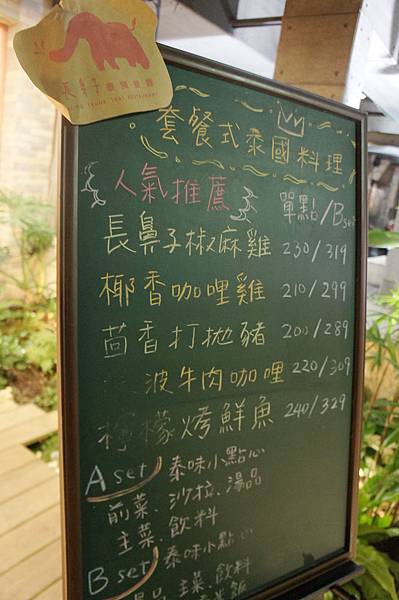 長鼻子泰國餐廳
套餐式泰國料理
人氣推薦 單點/Bset
長鼻子椒麻雞 230/319
椰香咖哩雞 210/299
茴香打拋豬 200/289
波牛肉咖哩 220/309
檸檬烤鮮魚 240/329
A set 泰味小點心
前菜、沙拉、湯品
主菜、飲料
B set 泰味小點心
主菜、飲料